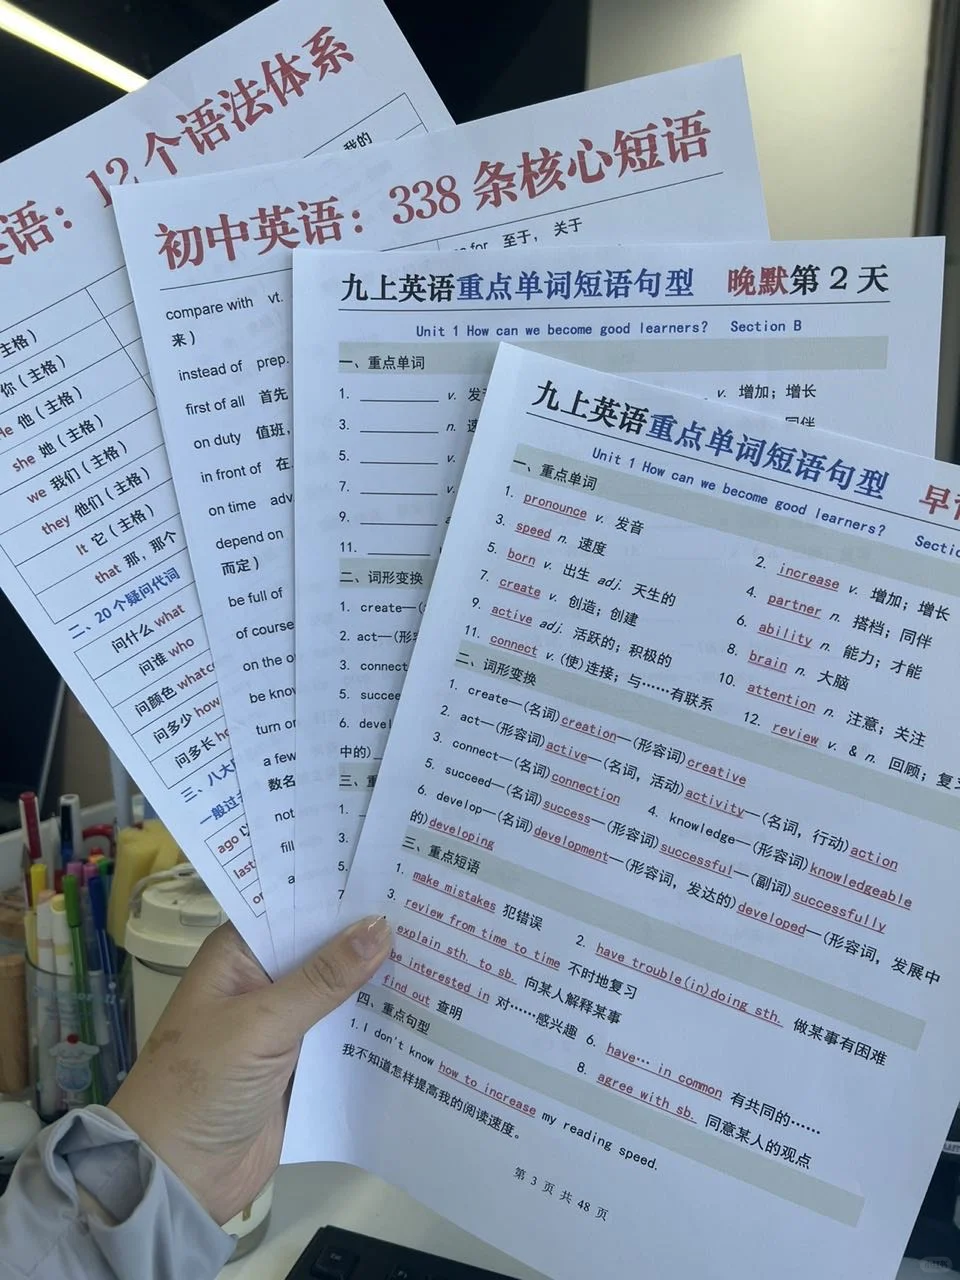 英语：12 个语法体系
我的
（主格）
你（主格）
He 他（主格）
she 她（主格）
we 我们（主格）
they 他们（主格）
It 它（主格）
that 那，那个
二、20 个疑问代词
问什么 what
问谁 who
问颜色 what
问多少 how
问多长
三、八大
一般过
ago 以
last
初中英语：338 条核心短语
as for 至于，关于
compare with vt.
来）
instead of prep.
first of all 首先
on duty 值班，
in front of 在
on time adv
depend on
而定）
be full of
of course
on the o
be know
turn or
a few
数名
not
fill
a
九上英语重点单词短语句型 晚默第 2 天
Unit 1 How can we become good learners? Section B
一、重点单词
1. ________ v. 发音
v. 增加；增长
3. ________ n. 速
同伴
5. ________ v.
7. ________ v.
9. ________ a
11. ________
二、词形变换
1. create—(
2. act—(形
3. connect
5. succee
6. devel
中的)
三、重
1.
3.
5.
7
九上英语重点单词短语句型 早
Unit 1 How can we become good learners? Sectio
一、重点单词
1. pronounce v. 发音
2. increase v. 增加；增长
3. speed n. 速度
4. partner n. 搭档；同伴
5. born v. 出生 adj. 天生的
6. ability n. 能力；才能
7. create v. 创造；创建
8. brain n. 大脑
9. active adj. 活跃的；积极的
10. attention n. 注意；关注
11. connect v. (使)连接；与……有联系
12. review v. & n. 回顾；复习
二、词形变换
1. create—(名词)creation—(形容词)creative
2. act—(形容词)active—(名词，活动)activity—(名词，行动)action
3. connect—(名词)connection 4. knowledge—(形容词)knowledgeable
5. succeed—(名词)success—(形容词)successful—(副词)successfully
6. develop—(名词)development—(形容词，发达的)developed—(形容词，发展中
的)developing
三、重点短语
1. make mistakes 犯错误
2. have trouble(in)doing sth. 做某事有困难
3. review from time to time 不时地复习
explain sth. to sb. 向某人解释某事
be interested in 对……感兴趣 6. have… in common 有共同的……
find out 查明
8. agree with sb. 同意某人的观点
四、重点句型
1. I don't know how to increase my reading speed.
我不知道怎样提高我的阅读速度。
第 3 页 共 48 页